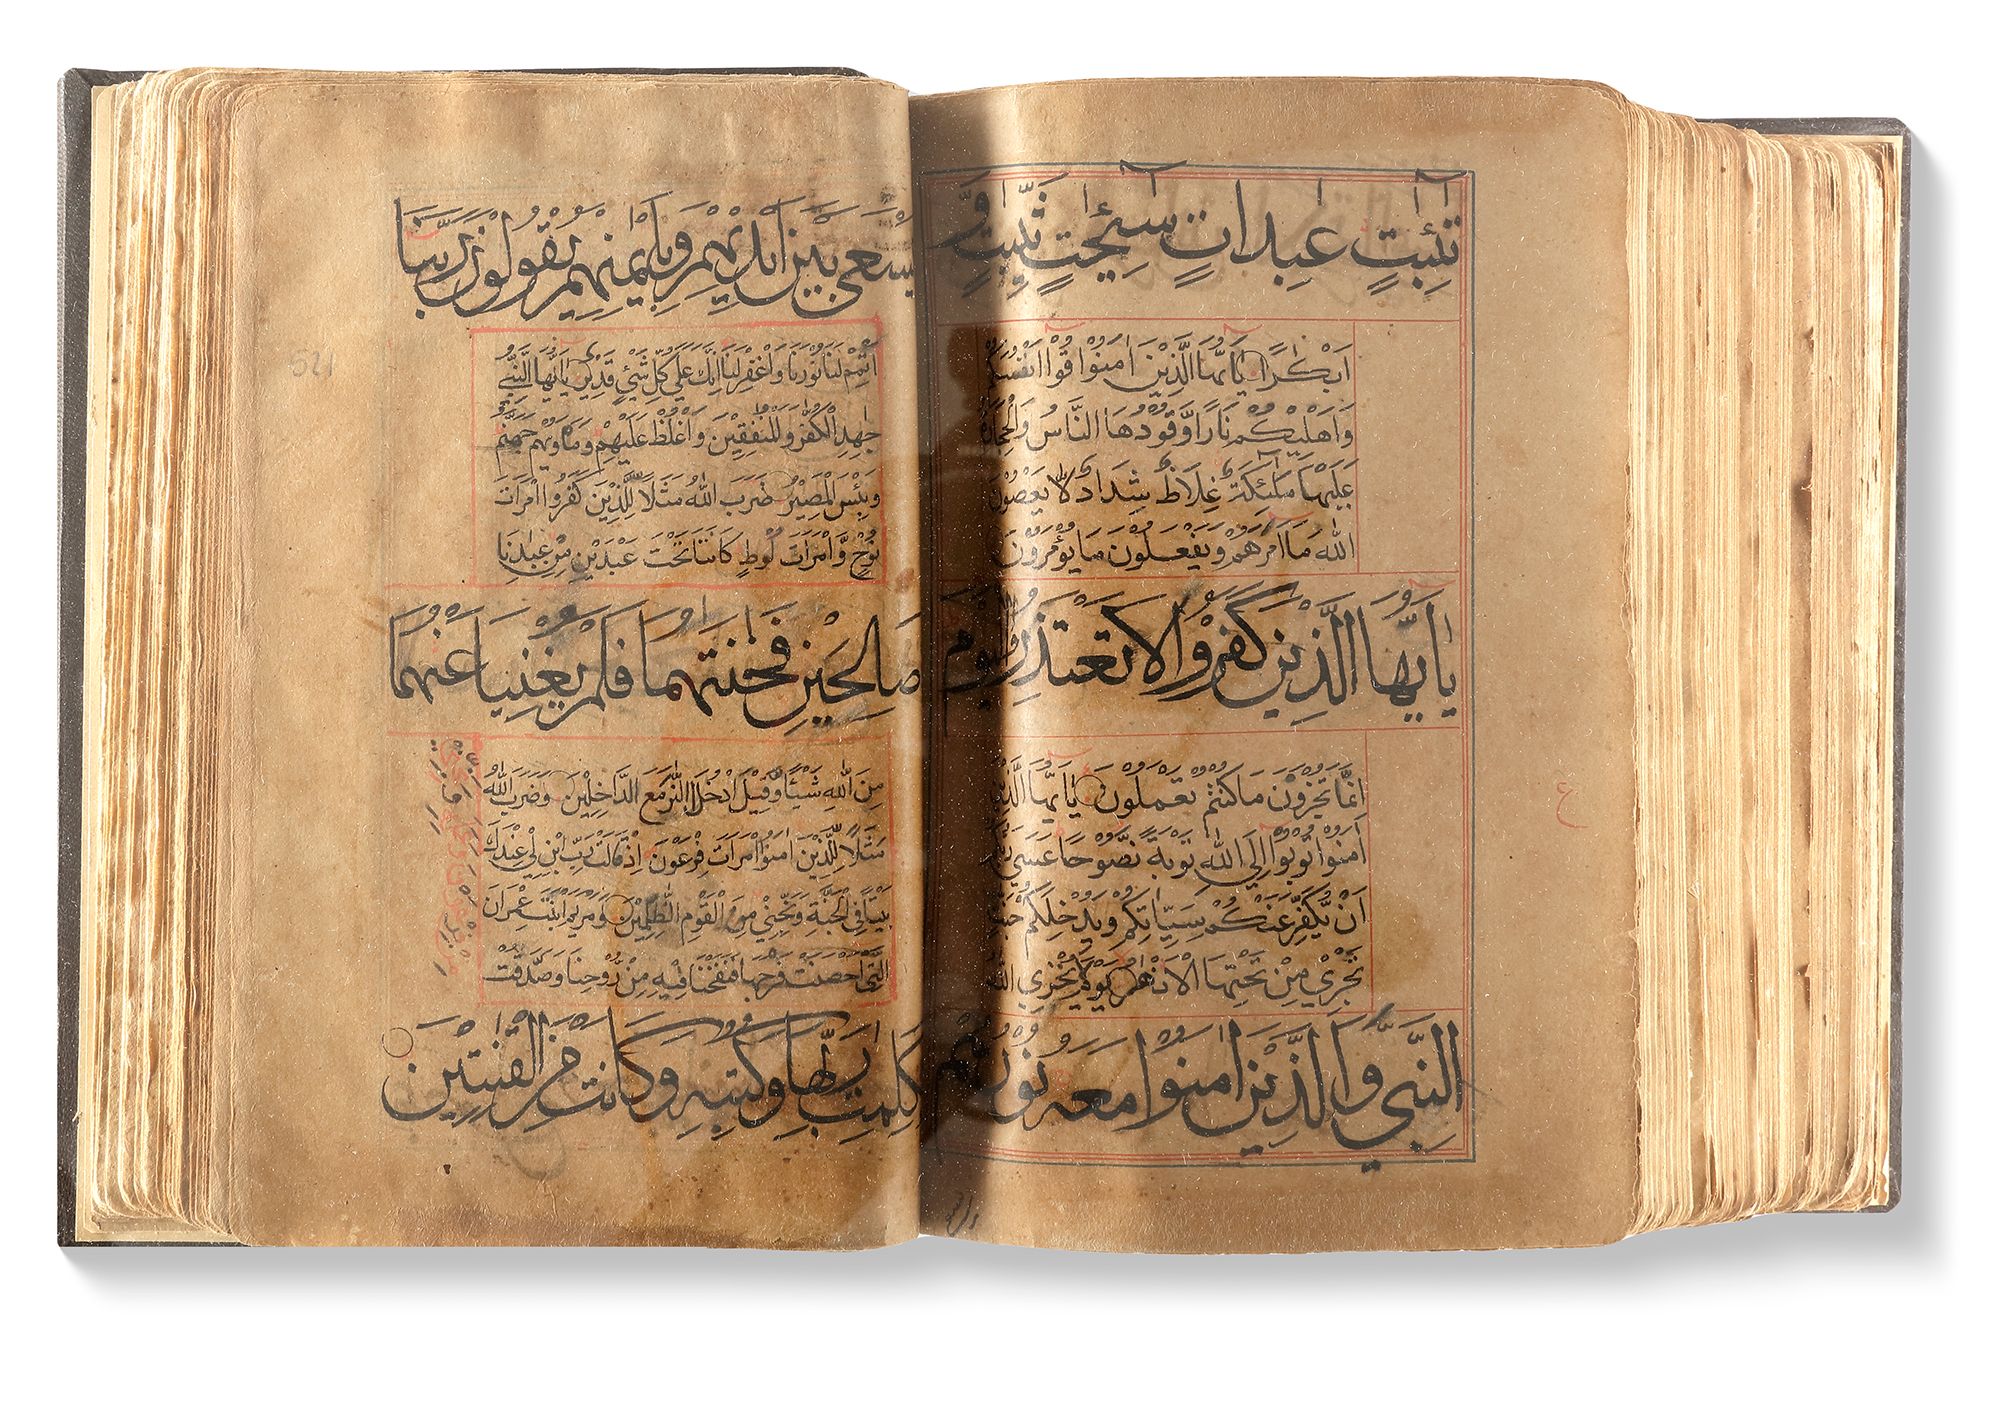 تٰٓئِبٰتٍ عٰبِدٰاتٍ سٰٓئِحٰتٍ ثَيِّبٰتٍ وَّ
اَبْكَارًا يٰٓاَيُّهَا الَّذِيْنَ اٰمَنُوْا قُوْٓا اَنْفُسَكُمْ
وَاَهْلِيْكُمْ نَارًا وَّقُوْدُهَا النَّاسُ وَالْحِجَارَةُ
عَلَيْهَا مَلٰٓئِكَةٌ غِلَاظٌ شِدَادٌ لَّا يَعْصُوْنَ
اللّٰهَ مَآ اَمَرَهُمْ وَيَفْعَلُوْنَ مَا يُؤْمَرُوْنَ
يٰٓاَيُّهَا الَّذِيْنَ كَفَرُوْا لَا تَعْتَذِرُوا الْيَوْمَ
اِنَّمَا تُجْزَوْنَ مَا كُنْتُمْ تَعْمَلُوْنَ يٰٓاَيُّهَا الَّذِيْنَ
اٰمَنُوْا تُوْبُوْٓا اِلَى اللّٰهِ تَوْبَةً نَّصُوْحًا عَسٰى رَبُّكُمْ
اَنْ يُّكَفِّرَ عَنْكُمْ سَيِّاٰتِكُمْ وَيُدْخِلَكُمْ جَنّٰتٍ
تَجْرِيْ مِنْ تَحْتِهَا الْاَنْهٰرُ يَوْمَ لَا يُخْزِي اللّٰهُ
النَّبِيَّ وَالَّذِيْنَ اٰمَنُوْا مَعَهٗ نُوْرُهُمْ
ع
يَسْعٰى بَيْنَ اَيْدِيْهِمْ وَبِاَيْمٰنِهِمْ يَقُوْلُوْنَ رَبَّنَا
اَتْمِمْ لَنَا نُوْرَنَا وَاغْفِرْ لَنَا اِنَّكَ عَلٰى كُلِّ شَيْءٍ قَدِيْرٌ يٰٓاَيُّهَا النَّبِيُّ
جَاهِدِ الْكُفَّارَ وَالْمُنٰفِقِيْنَ وَاغْلُظْ عَلَيْهِمْ وَمَاْوٰىهُمْ جَهَنَّمُ
وَبِئْسَ الْمَصِيْرُ ضَرَبَ اللّٰهُ مَثَلًا لِّلَّذِيْنَ كَفَرُوا امْرَاَتَ
نُوْحٍ وَّامْرَاَتَ لُوْطٍ كَانَتَا تَحْتَ عَبْدَيْنِ مِنْ عِبَادِنَا
صَالِحَيْنِ فَخَانَتٰهُمَا فَلَمْ يُغْنِيَا عَنْهُمَا
مِنَ اللّٰهِ شَيْئًا وَّقِيْلَ ادْخُلَا النَّارَ مَعَ الدَّاخِلِيْنَ وَضَرَبَ اللّٰهُ
مَثَلًا لِّلَّذِيْنَ اٰمَنُوا امْرَاَتَ فِرْعَوْنَ اِذْ قَالَتْ رَبِّ ابْنِ لِيْ عِنْدَكَ
بَيْتًا فِي الْجَنَّةِ وَنَجِّنِيْ مِنَ الْقَوْمِ الظّٰلِمِيْنَ وَمَرْيَمَ ابْنَتَ عِمْرَانَ
الَّتِيْٓ اَحْصَنَتْ فَرْجَهَا فَنَفَخْنَا فِيْهِ مِنْ رُّوْحِنَا وَصَدَّقَتْ
بِكَلِمٰتِ رَبِّهَا وَكُتُبِهٖ وَكَانَتْ مِنَ الْقٰنِتِيْنَ